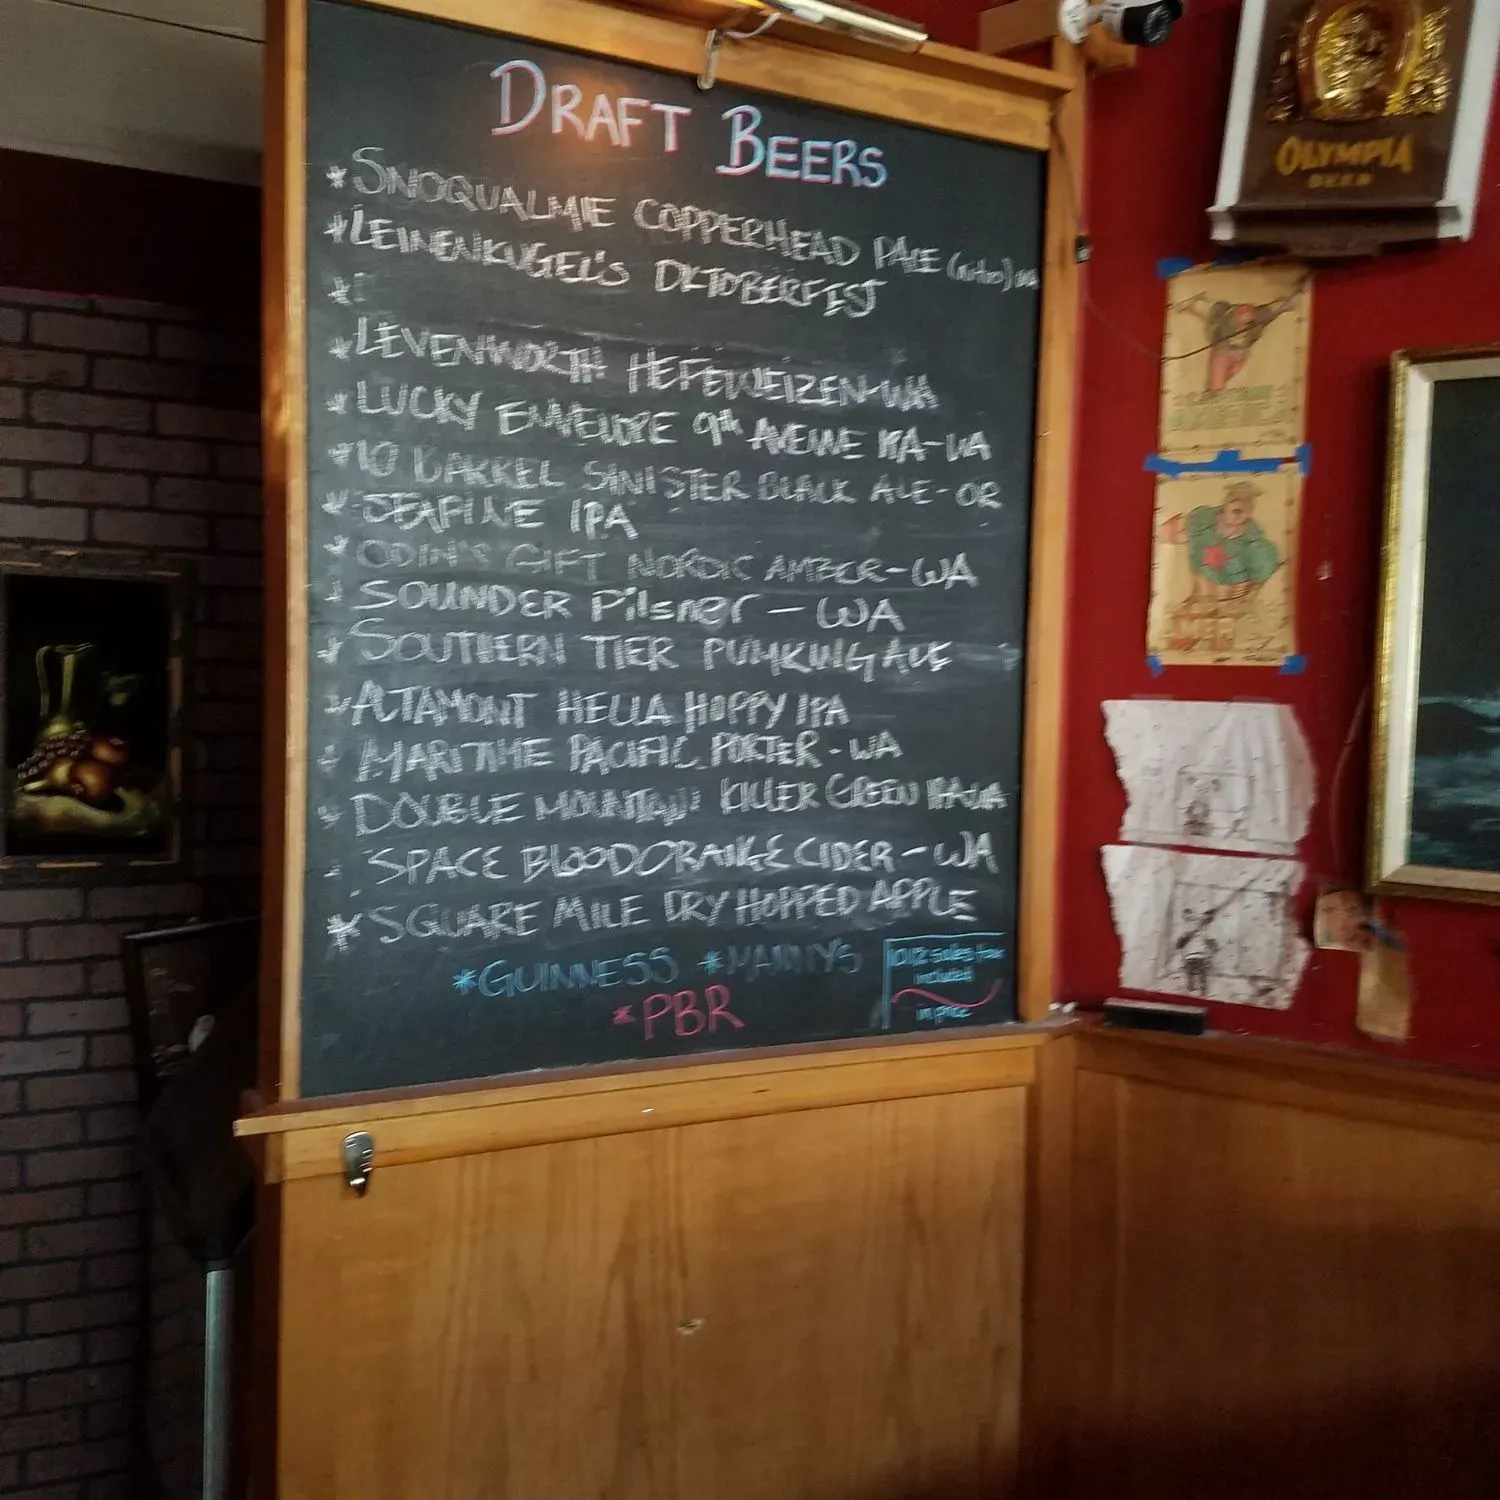 DRAFT BEERS
*SNOQUALMIE COPPERHEAD PALE (nitro) WA
*LEINENKUGEL'S OKTOBERFEST
*
*LEVENWORTH HEFEWEIZEN-WA
*LUCKY ENVELOPE 9th AVENUE IPA-WA
*10 BARREL SINISTER BLACK ALE-OR
*SEAPINE IPA
*ODIN'S GIFT NORDIC AMBER-WA
*SOUNDER Pilsner - WA
*SOUTHERN TIER PUMKING ALE
*ALTAMONT HELLA HOPPY IPA
*MARITIME PACIFIC PORTER-WA
*DOUBLE MOUNTAIN KILLER GREEN IPA-WA
SPACE BLOODORANGE CIDER-WA
*SQUARE MILE DRY HOPPED APPLE
*GUINNESS *MANNYS
*PBR
10.1% sales tax
included
in price
OLYMPIA
BEER